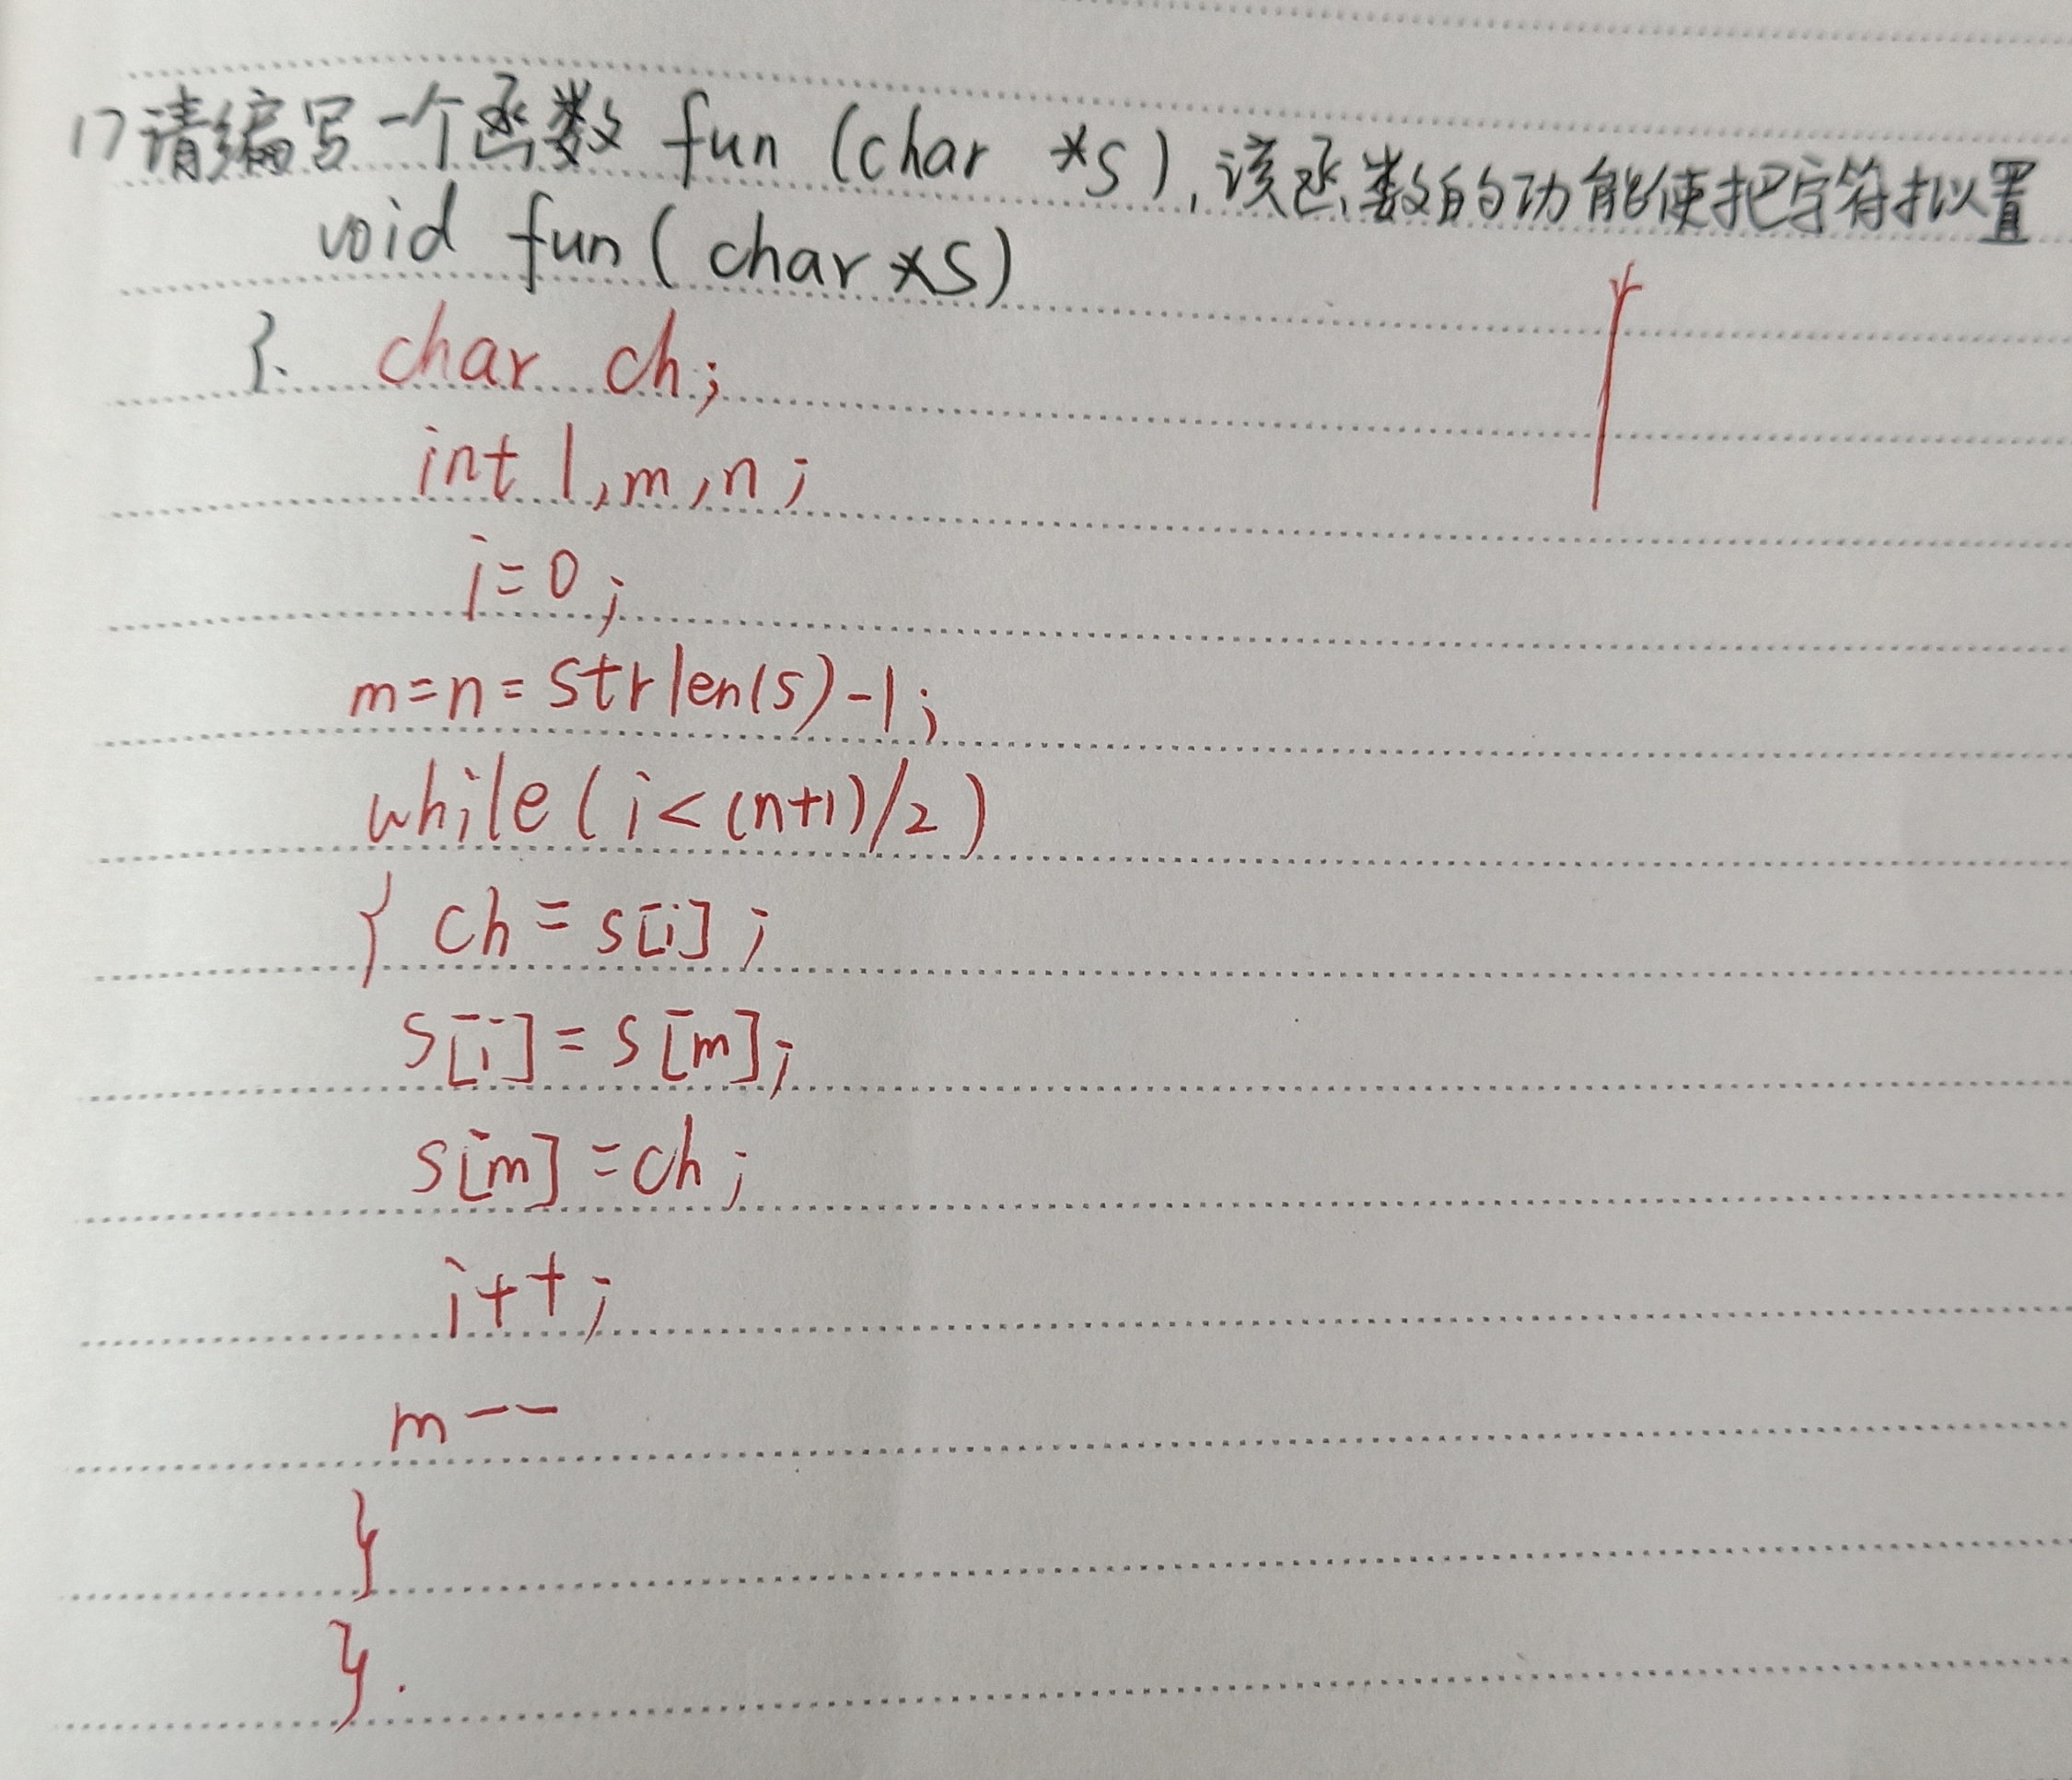 17请编写一个函数 fun (char *s), 该函数的功能使把字符拟置
void fun( char *S)
{. char ch;
int l,m,n;
i=0;
m=n=strlen(s)-1;
while(i<(n+1)/2)
{ ch=s[i];
s[i]=s[m];
s[m]=ch;
i++;
m--
}
}.